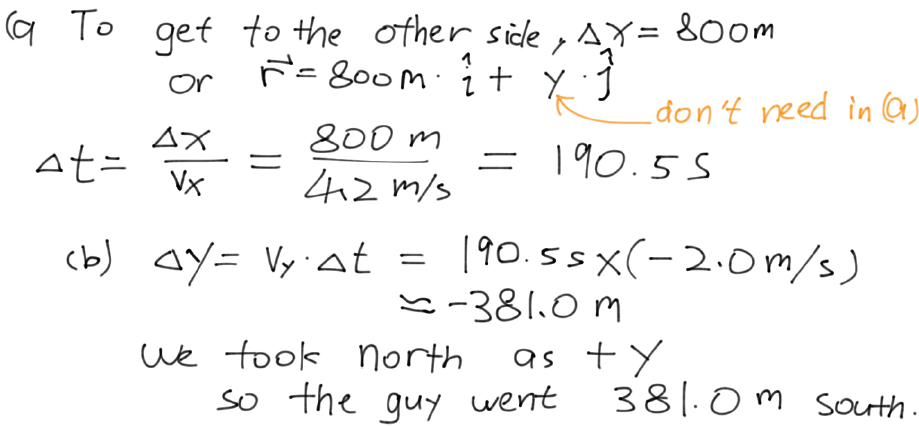 (a To get to the other side, Δx = 800m
or r⃗ = 800m · î + y · ĵ
don't need in (a)
Δt = Δx/Vx = 800 m/4.2 m/s = 190.5 s
(b) Δy = Vy · Δt = 190.5 s x (-2.0 m/s)
≈ -381.0 m
We took north as + y
so the guy went 381.0 m south.